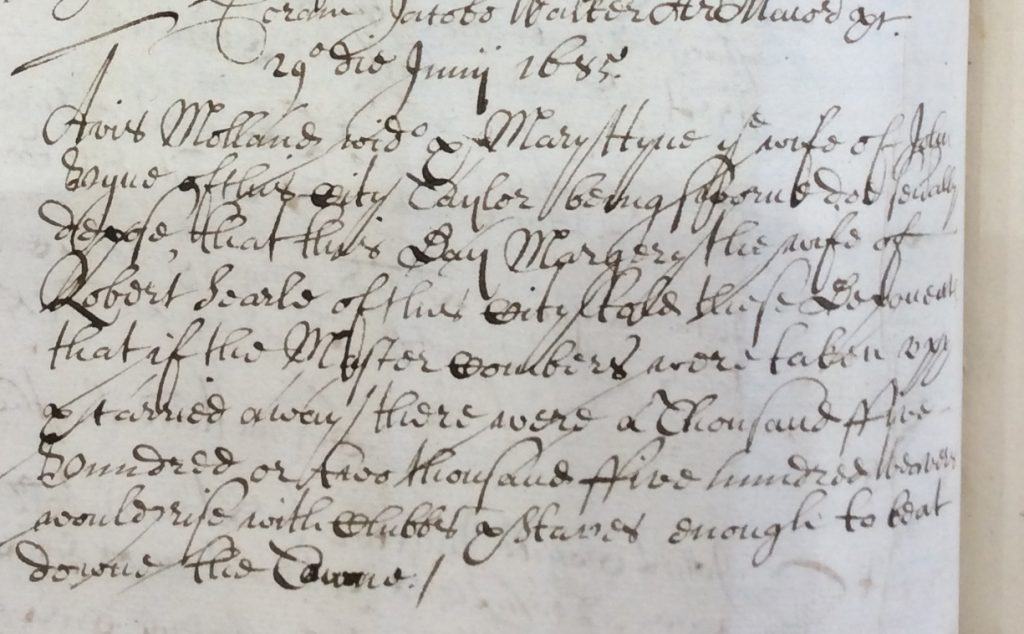 Coram Jacobo Walker Ar Maiore
29º die Junij 1685.
Avis Molland wid & Mary Hyne ye wife of John
Hyne of this City Taylor being sworne doe severally
depose, that this Day Margery the wife of
Robert Searle of this City told these Deponents
that if the Master Combers were taken upp
& carried away there were a Thousand ffive
Hundred or two thousand ffive hundred weavers
would rise with Clubbs & Staves enough to beat
downe the Towne./